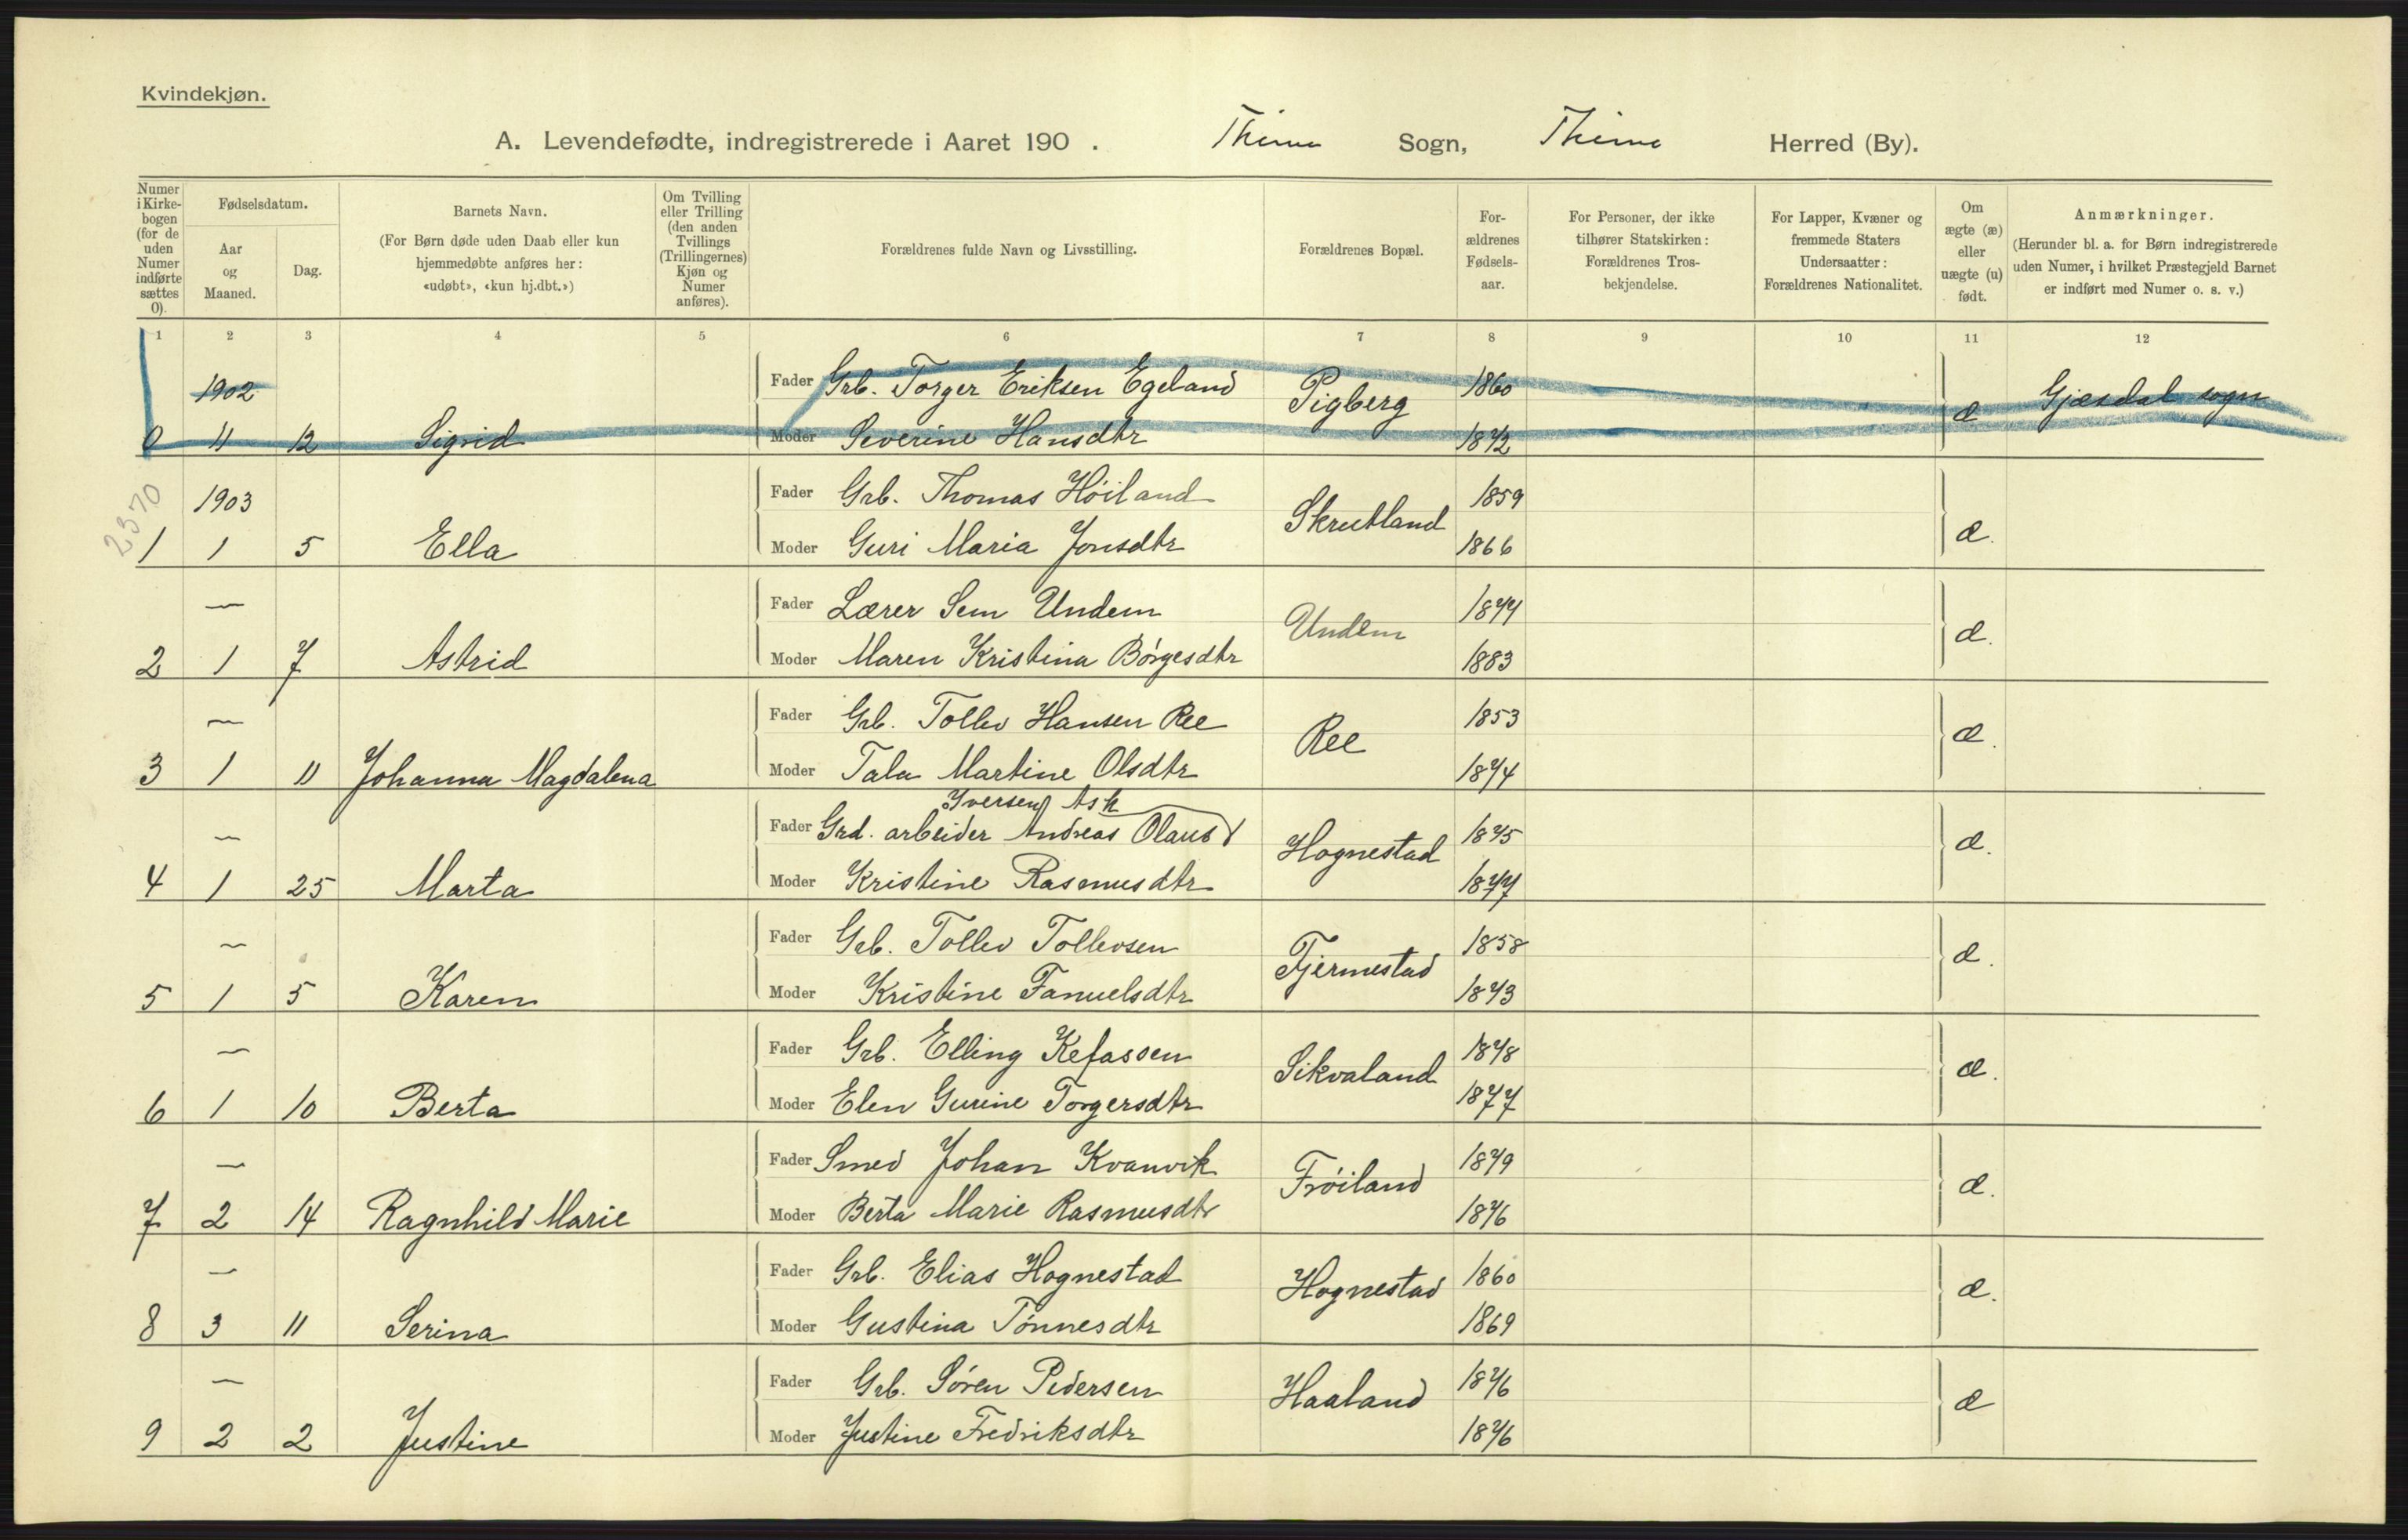 Kvindekjøn.
A. Levendefødte, indregistrerede i Aaret 190 . Thime Sogn, Thime Herred (By).
Numer i Kirkebogen (for de uden Numer indførte sættes 0).
Fødselsdatum.
Aar og Maaned.
Dag.
Barnets Navn.
(For Børn døde uden Daab eller kun hjemmedøbte anføres her: «udøbt», «kun hj.dbt.»)
Om Tvilling eller Trilling (den anden Tvillings (Trillingernes) Kjøn og Numer anføres).
Forældrenes fulde Navn og Livsstilling.
Forældrenes Bopæl.
Forældrenes Fødselsaar.
For Personer, der ikke tilhører Statskirken: Forældrenes Trosbekjendelse.
For Lapper, Kvæner og fremmede Staters Undersaatter: Forældrenes Nationalitet.
Om ægte (æ) eller uægte (u) født.
Anmærkninger.
(Herunder bl. a. for Børn indregistrerede uden Numer, i hvilket Præstegjeld Barnet er indført med Numer o. s. v.)
1 2 3 4 5 6 7 8 9 10 11 12
1902 Fader Grb. Torger Eriksen Egeland Pigberg 1860 æ Gjesdal sogn
0 11 12 Sigrid Moder Severine Hansdtr 1872
2370
1903 Fader Grb. Thomas Høiland Skrutland 1859 æ.
1 1 5 Ella Moder Guri Maria Jonsdtr 1866
— Fader Lærer Sem Undem Undem 1877 æ.
2 1 7 Astrid Moder Maren Kristina Børgesdtr 1883
— Fader Grb. Tollev Hansen Ree Ree 1853 æ.
3 1 11 Johanna Magdalena Moder Tala Martine Olsdtr 1874
Iversen Ask
— Fader Grd. arbeider Andreas Olaus Hognestad 1875 æ.
4 1 25 Marta Moder Kristine Rasmusdtr 1877
— Fader Grb. Tollev Tollevsen Tjermestad 1858 æ.
5 1 5 Karen Moder Kristine Fanuelsdtr 1873
— Fader Grb. Elling Kefassen Sikvaland 1878 æ.
6 1 10 Berta Moder Elen Gurine Torgersdtr 1877
— Fader Smed Johan Kvanvik Frøiland 1879 æ.
7 2 14 Ragnhild Marie Moder Berta Marie Rasmusdtr 1876
— Fader Grb. Elias Hognestad Hognestad 1860 æ.
8 3 11 Serina Moder Gustina Tønnesdtr 1869
— Fader Grb. Søren Pedersen Haaland 1876 æ
9 2 2 Justine Moder Justine Fredriksdtr 1876